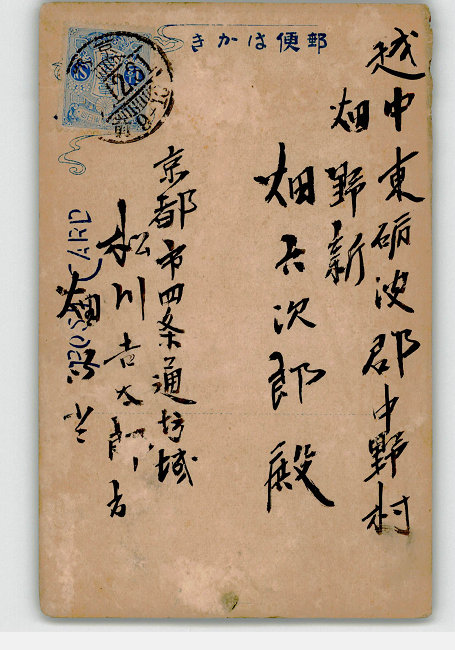 きかは便郵
越中東砺波郡中野村
畑野新
畑兵次郎殿
京都市四条通坊城
松川吉太郎方
畑
CARD